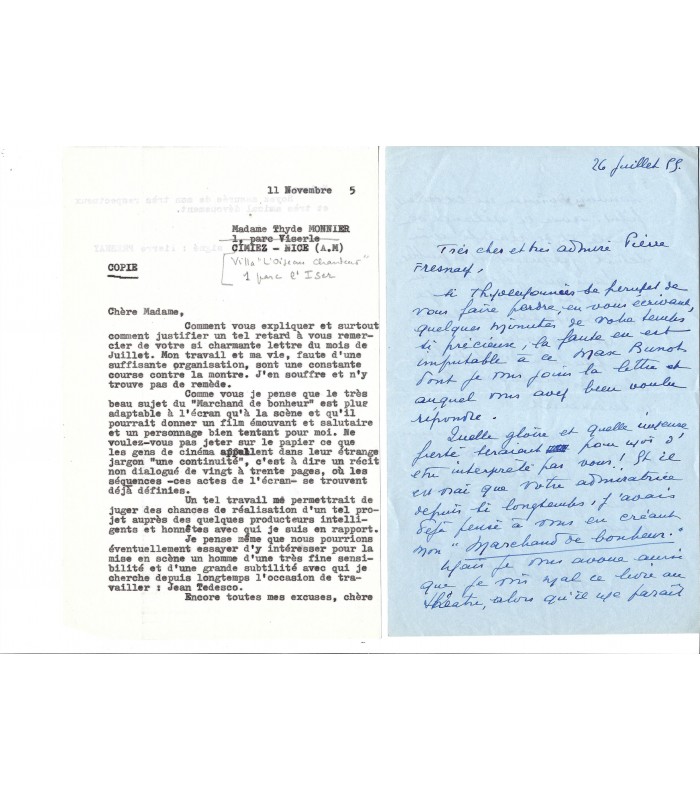 11 Novembre 5
Madame Thyde MONNIER
1, parc Viserle
CIMIEZ - NICE (A.M)
Villa "L'Oiseau Chanteur"
1 parc l' Iser
COPIE
Chère Madame,
Comment vous expliquer et surtout
comment justifier un tel retard à vous remer-
cier de votre si charmante lettre du mois de
Juillet. Mon travail et ma vie, faute d'une
suffisante organisation, sont une constante
course contre la montre. J'en souffre et n'y
trouve pas de remède.
Comme vous je pense que le très
beau sujet du "Marchand de bonheur" est plus
adaptable à l'écran qu'à la scène et qu'il
pourrait donner un film émouvant et salutaire
et un personnage bien tentant pour moi. Ne
voulez-vous pas jeter sur le papier ce que
les gens de cinéma appellent dans leur étrange
jargon "une continuité", c'est à dire un récit
non dialogué de vingt à trente pages, où les
séquences -ces actes de l'écran- se trouvent
déjà définies.
Un tel travail me permettrait de
juger des chances de réalisation d'un tel pro-
jet auprès des quelques producteurs intelli-
gents et honnêtes avec qui je suis en rapport.
Je pense même que nous pourrions
éventuellement essayer d'y intéresser pour la
mise en scène un homme d'une très fine sensi-
bilité et d'une grande subtilité avec qui je
cherche depuis longtemps l'occasion de tra-
vailler : Jean Tedesco.
Encore toutes mes excuses, chère
26 Juillet 55.
Très cher et très admiré Pierre
Fresnay,
Si Thyde Monnier se permet de
vous faire perdre, en vous écrivant,
quelques minutes de votre temps
si précieuse, la faute en est
imputable à ce Max Bunot
dont je vous joins la lettre et
auquel vous avez bien voulu
répondre.
Quelle gloire et quelle immense
fierté seraient pour moi d'
etre interprété par vous ! Et il
est vrai que votre admiratrice
depuis si longtemps, j'avais
déjà pensé à vous en créant
mon "Marchand de bonheur."
Mais je vous avoue aussi
que je vois mal ce livre au
théâtre, alors qu'il me paraît